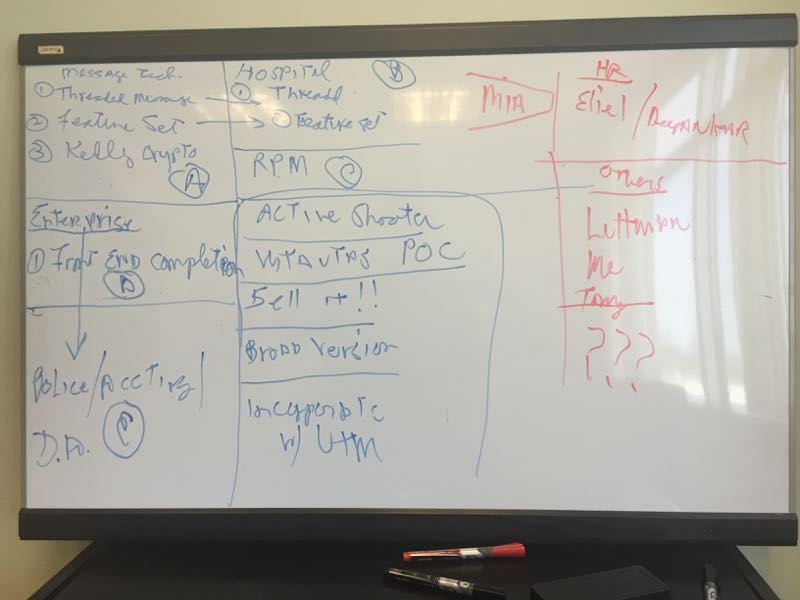 Message Tech.
① Threaded Message
② Feature Set
③ Kelly Crypto
A
HOSPITAL B
① Thread
② Feature set
RPM C
Enterprise
① Front END completion
A
Police/Accting/
D.A.
ACTIVE Shooter
POC
Sell it!!
Broad Version
Incorporate
w/
MIA
HR
Eliel/DeepANKAR
Others
Luttman
Me
Tony
???